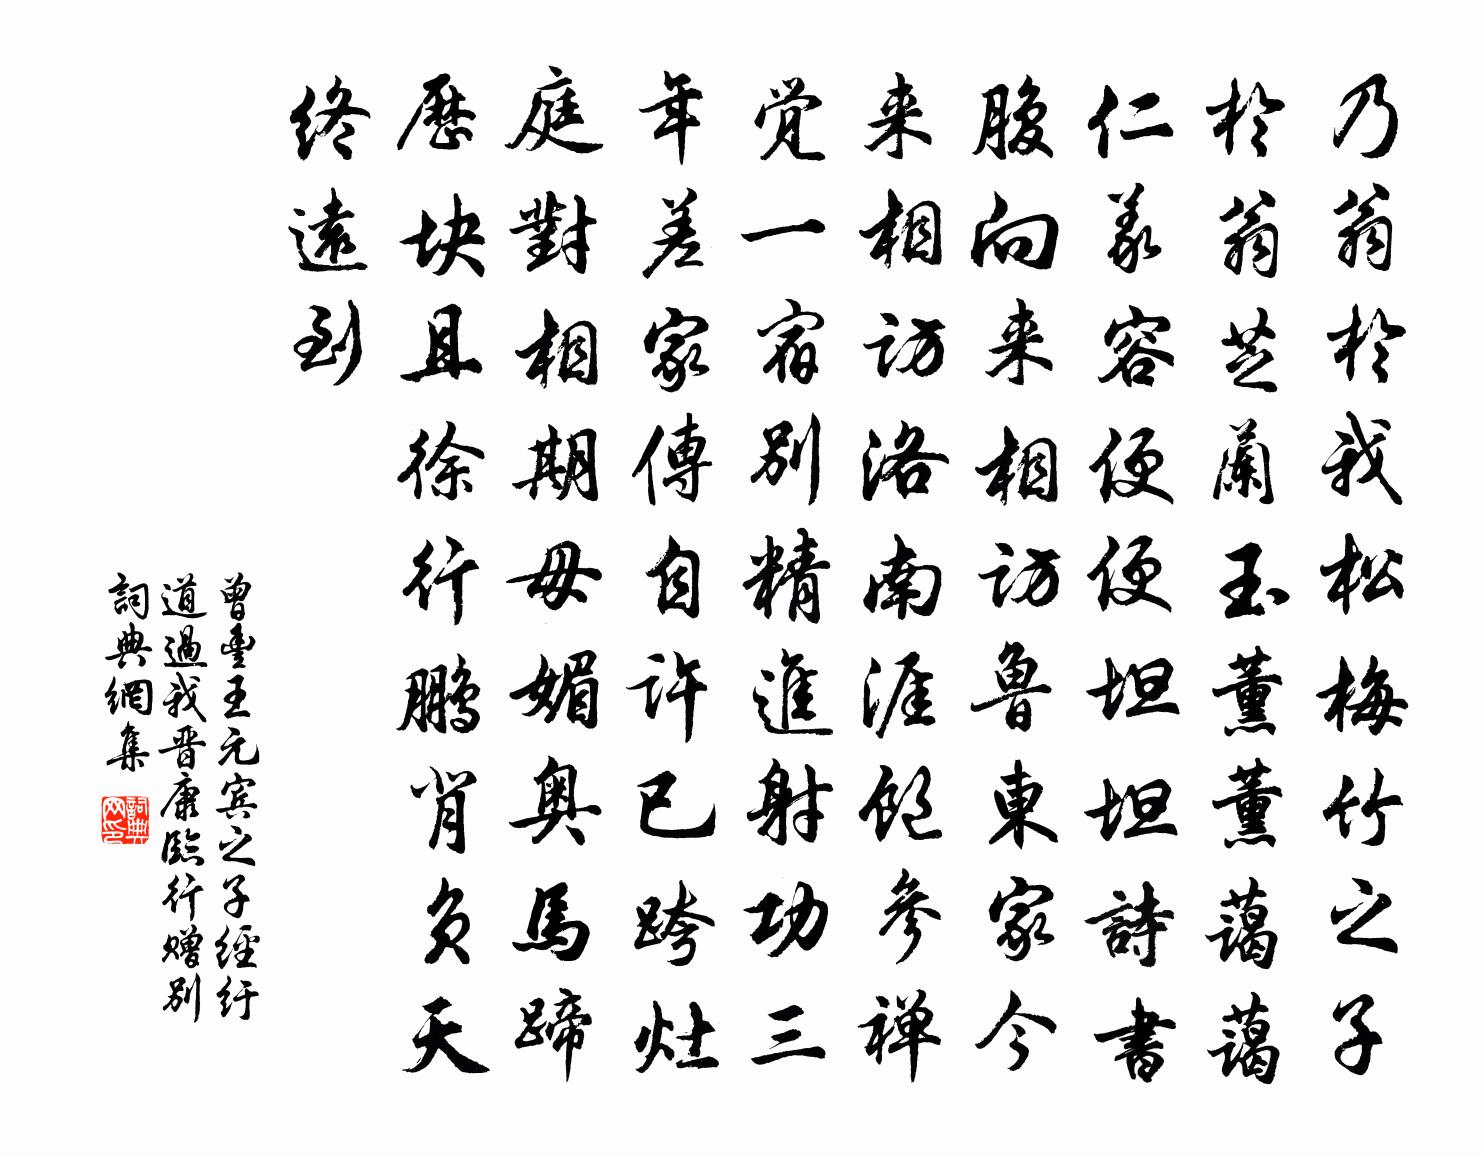 乃翁於我松梅竹之子
於翁芝蘭玉薰薰藹藹
仁義容便便坦坦詩書
腹向来相訪魯東家今
来相訪洛南涯飽參禅
覚一宿別精進射功三
年差家傳自許已跨灶
庭對相期毋媚奧馬蹄
歷块且徐行鹏背负天
终遠到
曾豊王元宾之子經紆
道過我晋康臨行赠别
詞典網集
詞典网印